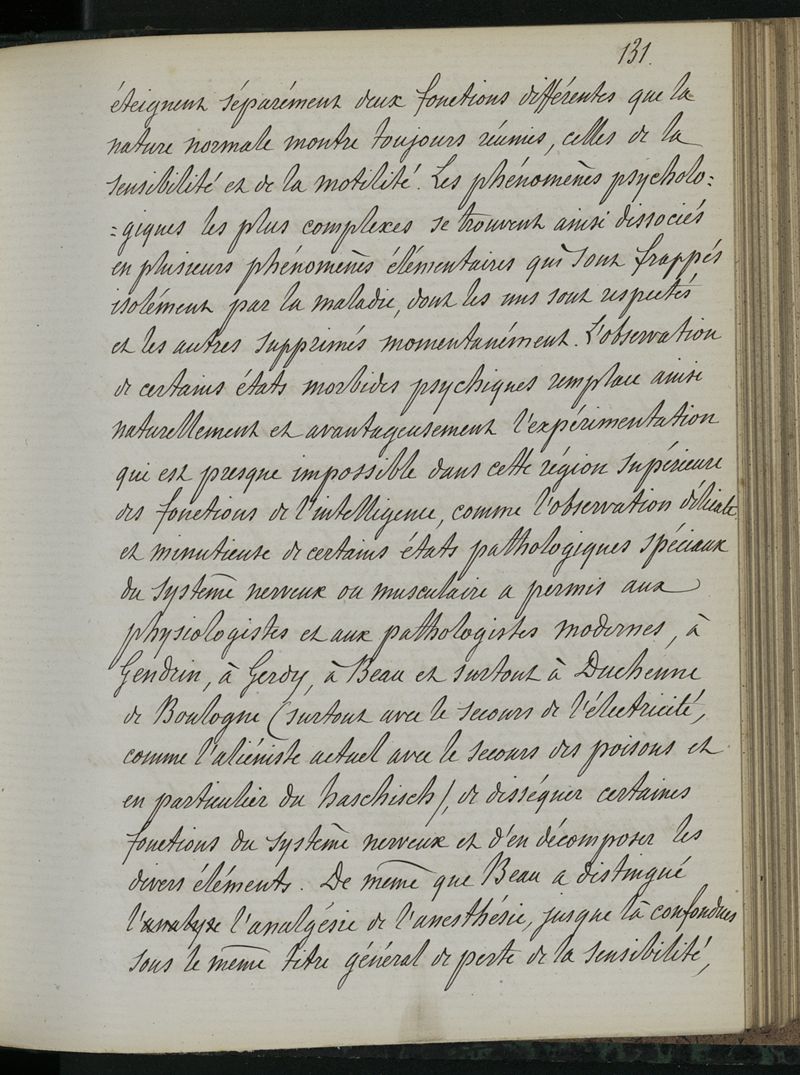 131.
éteignent séparément deux fonctions différentes que la
nature normale montre toujours réunies, celles de la
sensibilité et de la motilité. Les phénomènes psycholo=
=giques les plus complexes se trouvent ainsi dissociés
en plusieurs phénomènes élémentaires qui sont frappés
isolément par la maladie, dont les uns sont respectés
et les autres supprimés momentanément. L'observation
de certains états morbides psychiques remplace ainsi
naturellement et avantageusement l'expérimentation
qui est presque impossible dans cette région supérieure
des fonctions de l'intelligence, comme l'observation délicate
et minutieuse de certains états pathologiques spéciaux
du système nerveux ou musculaire a permis aux
physiologistes et aux pathologistes modernes, à
Gendrin, à Gerdy, à Beau et surtout à Duchenne
de Boulogne (surtout avec le secours de l'électricité,
comme l'aliéniste actuel avec le secours des poisons et
en particulier du haschisch), de disséquer certaines
fonctions du système nerveux et d'en décomposer les
divers éléments. De même que Beau a distingué
l'analyse l'analgésie de l'anesthésie, jusque là confondues
sous le même titre général de perte de la sensibilité,